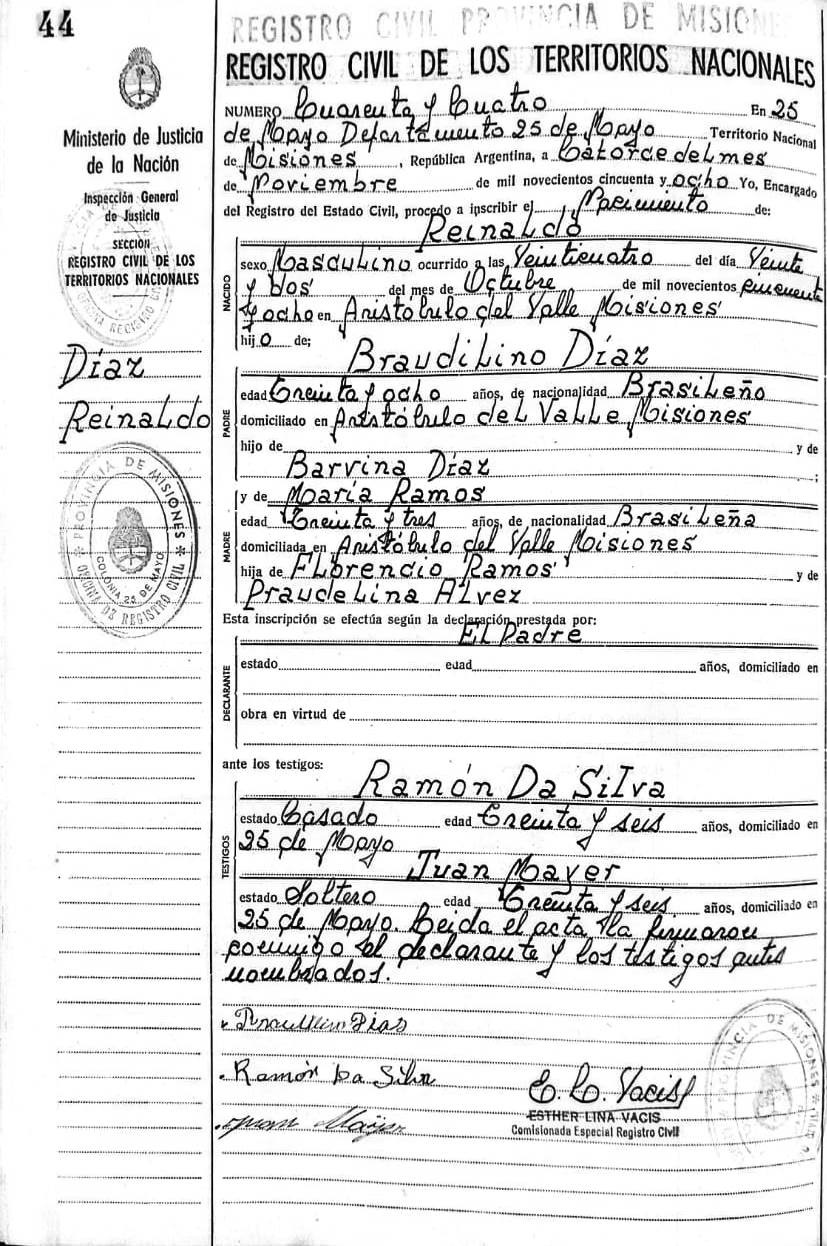 44
REGISTRO CIVIL PROVINCIA DE MISIONES
REGISTRO CIVIL DE LOS TERRITORIOS NACIONALES
Ministerio de Justicia
de la Nación
Inspección General
de Justicia
SECCIÓN
REGISTRO CIVIL DE LOS
TERRITORIOS NACIONALES
Díaz
Reinaldo
PROVINCIA DE MISIONES
COLONIA 25 DE MAYO
OFICINA DE REGISTRO CIVIL
NUMERO Cuarenta y Cuatro En 25
de Mayo Departamento 25 de Mayo Territorio Nacional
de Misiones, República Argentina, a Catorce del mes
de Noviembre de mil novecientos cincuenta y ocho Yo, Encargado
del Registro del Estado Civil, procedo a inscribir el Nacimiento de:
Reinaldo
NACIDO
sexo Masculino ocurrido a las Veinticuatro del día Veinte
y Dos del mes de Octubre de mil novecientos cincuenta
y ocho en Aristóbulo del Valle Misiones
hijo de;
Braudilino Díaz
PADRE
edad Treinta y ocho años, de nacionalidad Brasileño
domiciliado en Aristóbulo del Valle Misiones
hijo de y de
Barvina Díaz ;
MADRE
y de María Ramos
edad Treinta y tres años, de nacionalidad Brasileña
domiciliada en Aristóbulo del Valle Misiones
hija de Florencio Ramos y de
Praudelina Alvez
Esta inscripción se efectúa según la declaración prestada por:
El Padre
DECLARANTE
estado edad años, domiciliado en
obra en virtud de
ante los testigos:
Ramón Da Silva
TESTIGOS
estado Casado edad Treinta y seis años, domiciliado en
25 de Mayo
Juan Mayer
estado Soltero edad Treinta y seis años, domiciliado en
25 de Mayo. Leida el acta la firmaron
conmigo el declarante y los testigos antes
nombrados.
Diaz
Ramón Da Silva
Juan Mayer
E. L. Vacis
ESTHER LINA VACIS
Comisionada Especial Registro Civil
PROVINCIA DE MISIONES